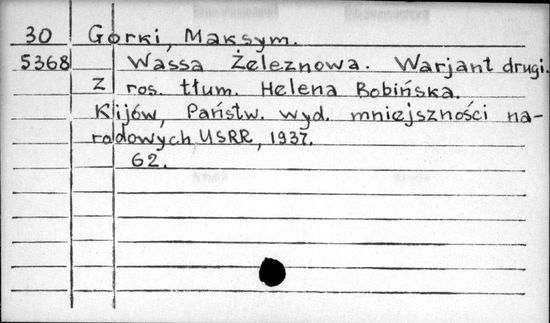 30 Gorki, Maksym.
5368 Wassa Żeleznowa. Warjant drugi.
Z ros. tłum. Helena Bobińska.
Kijów, Państw. wyd. mniejszności na-
rodowych USRR, 1937.
62.